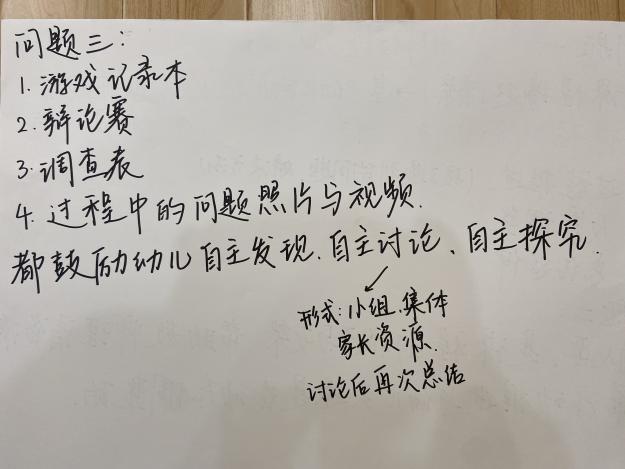 问题三:
1. 游戏记录本
2. 辩论赛
3. 调查表
4. 过程中的问题照片与视频.
都鼓励幼儿自主发现、自主讨论、自主探究.
形式: 小组、集体
家长资源.
讨论后再次总结